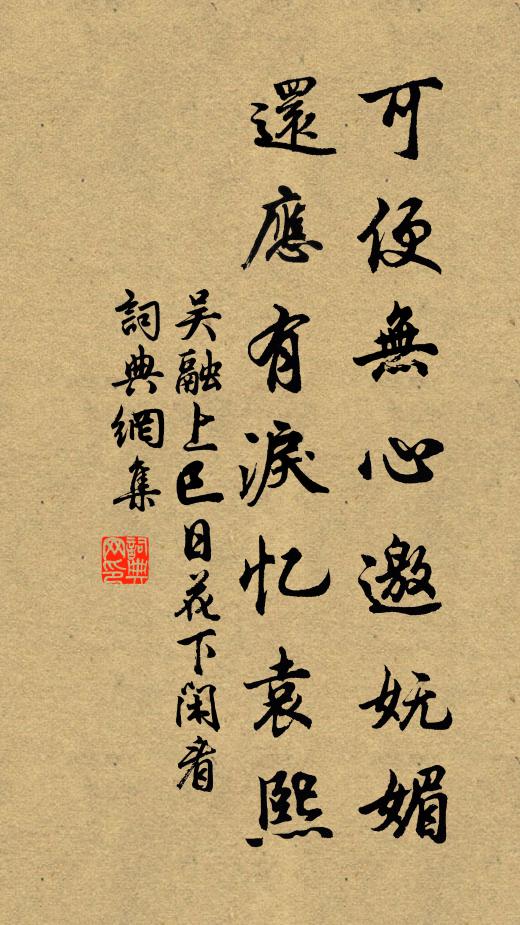 可便無心邀妩媚
還應有淚忆袁熙
吴融上巳日花下闲看
詞典網集
詞典网印